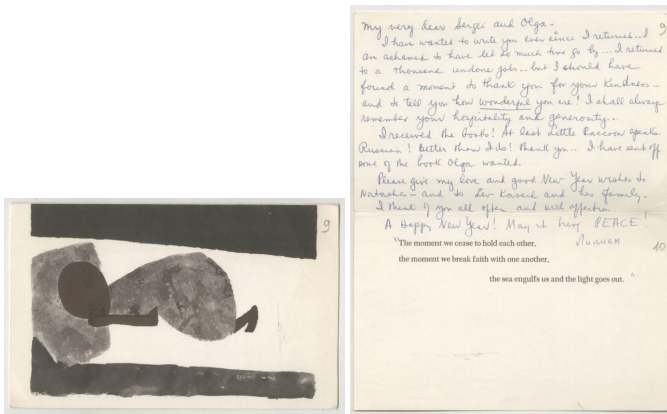 9
9
My very dear Sergei and Olga -
I have wanted to write you ever since I returned.. I
am ashamed to have let so much time go by... I returned
to a thousand undone jobs.. but I should have
found a moment to thank you for your kindness -
and to tell you how wonderful you are! I shall always
remember your hospitality and generosity..
I received the books! At last Little Raccoon speaks
Russian! Better than I do! Thank you... I have sent off
some of the books Olga wanted.
Please give my love and good New Year wishes to
Natasha - and to Lev Kassil and his family.
I think of you all often and with affection
A Happy New Year! May it bring PEACE!
Лилиан
10
"The moment we cease to hold each other,
the moment we break faith with one another,
the sea engulfs us and the light goes out."